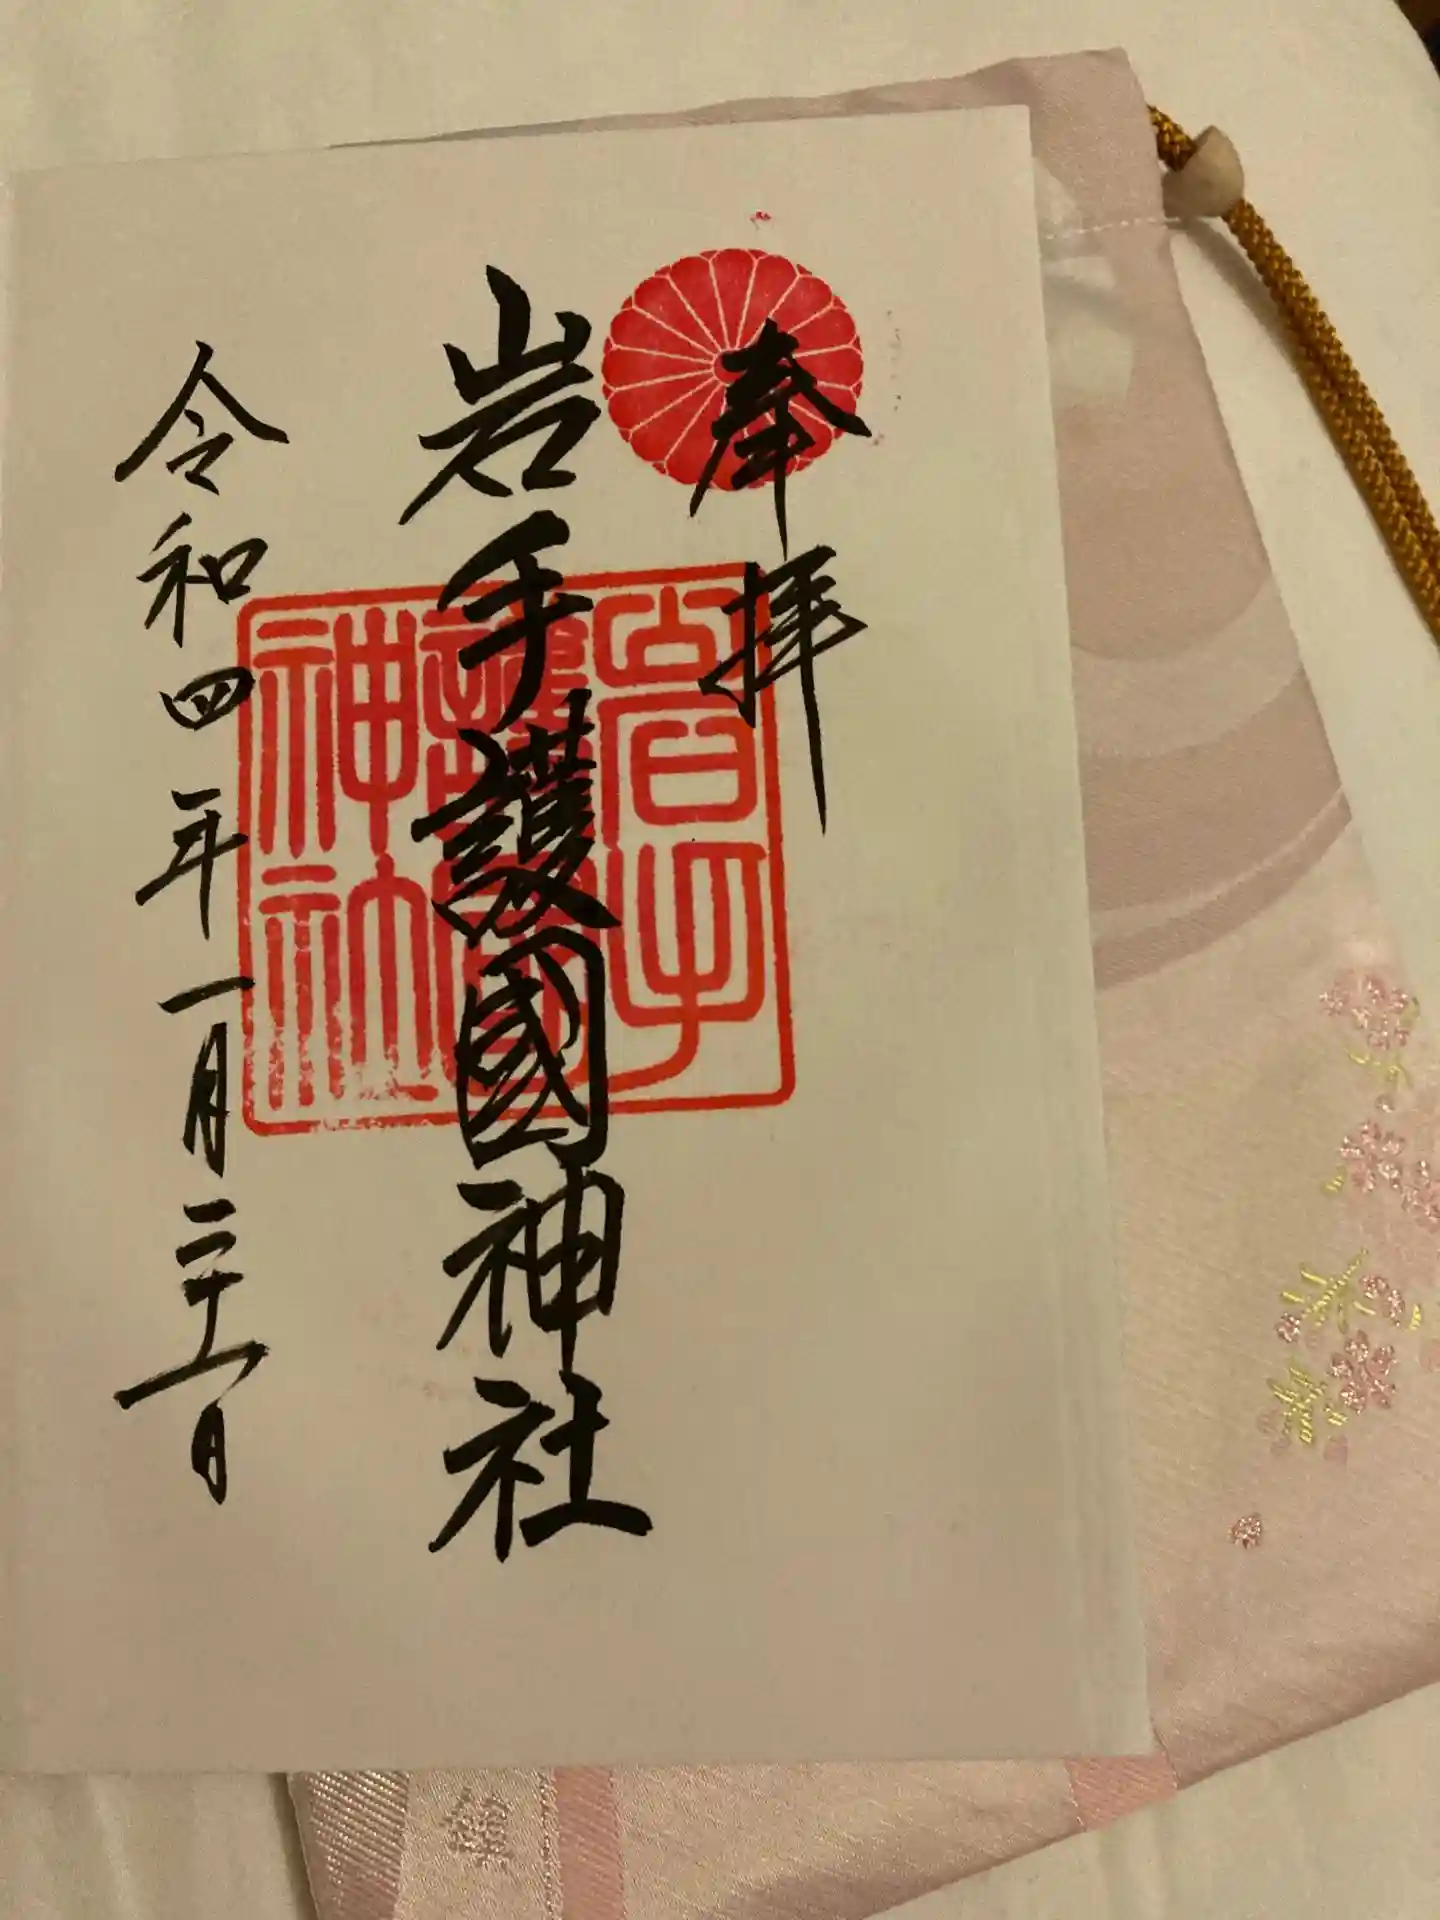 奉拝
岩手護國神社
令和四年一月二十一日
岩手
護國
神社